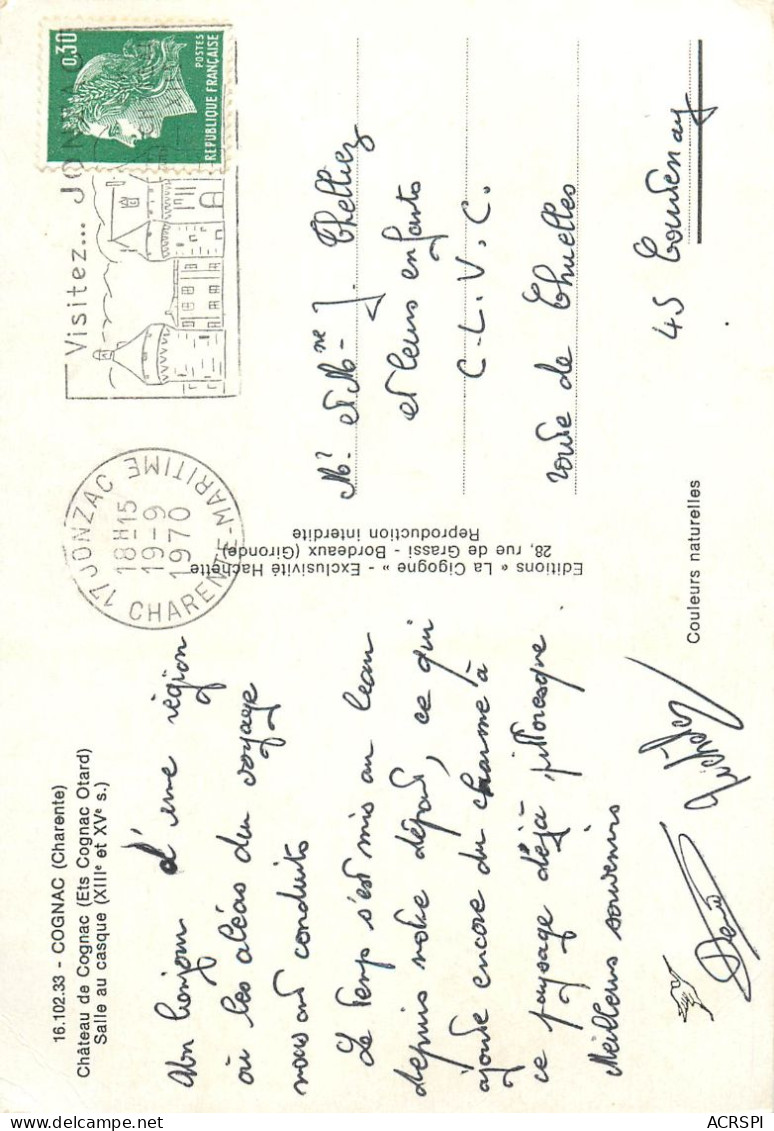 16.102.33 - COGNAC (Charente)
Château de Cognac (Ets Cognac Otard)
Salle au casque (XIIIe et XVe s.)
Un bonjour d'une région
où les aléas du voyage
nous ont conduits
Le temps s'est mis au beau
depuis notre départ, ce qui
ajoute encore du charme à
ce paysage déjà pittoresque
Meilleurs souvenirs
Editions « La Cigogne » - Exclusivité Hachette
28, rue de Grassi - Bordeaux (Gironde)
Reproduction interdite
17 JONZAC
18H15
19-9
1970
CHARENTE-MARITIME
Visitez... JONZAC
0,30
POSTES
REPUBLIQUE FRANÇAISE
Mr et Mme J. Thelliez
et leurs enfants
C.L.V.C.
route de Thuelles
45 Courtenay
Couleurs naturelles
ACRSPI